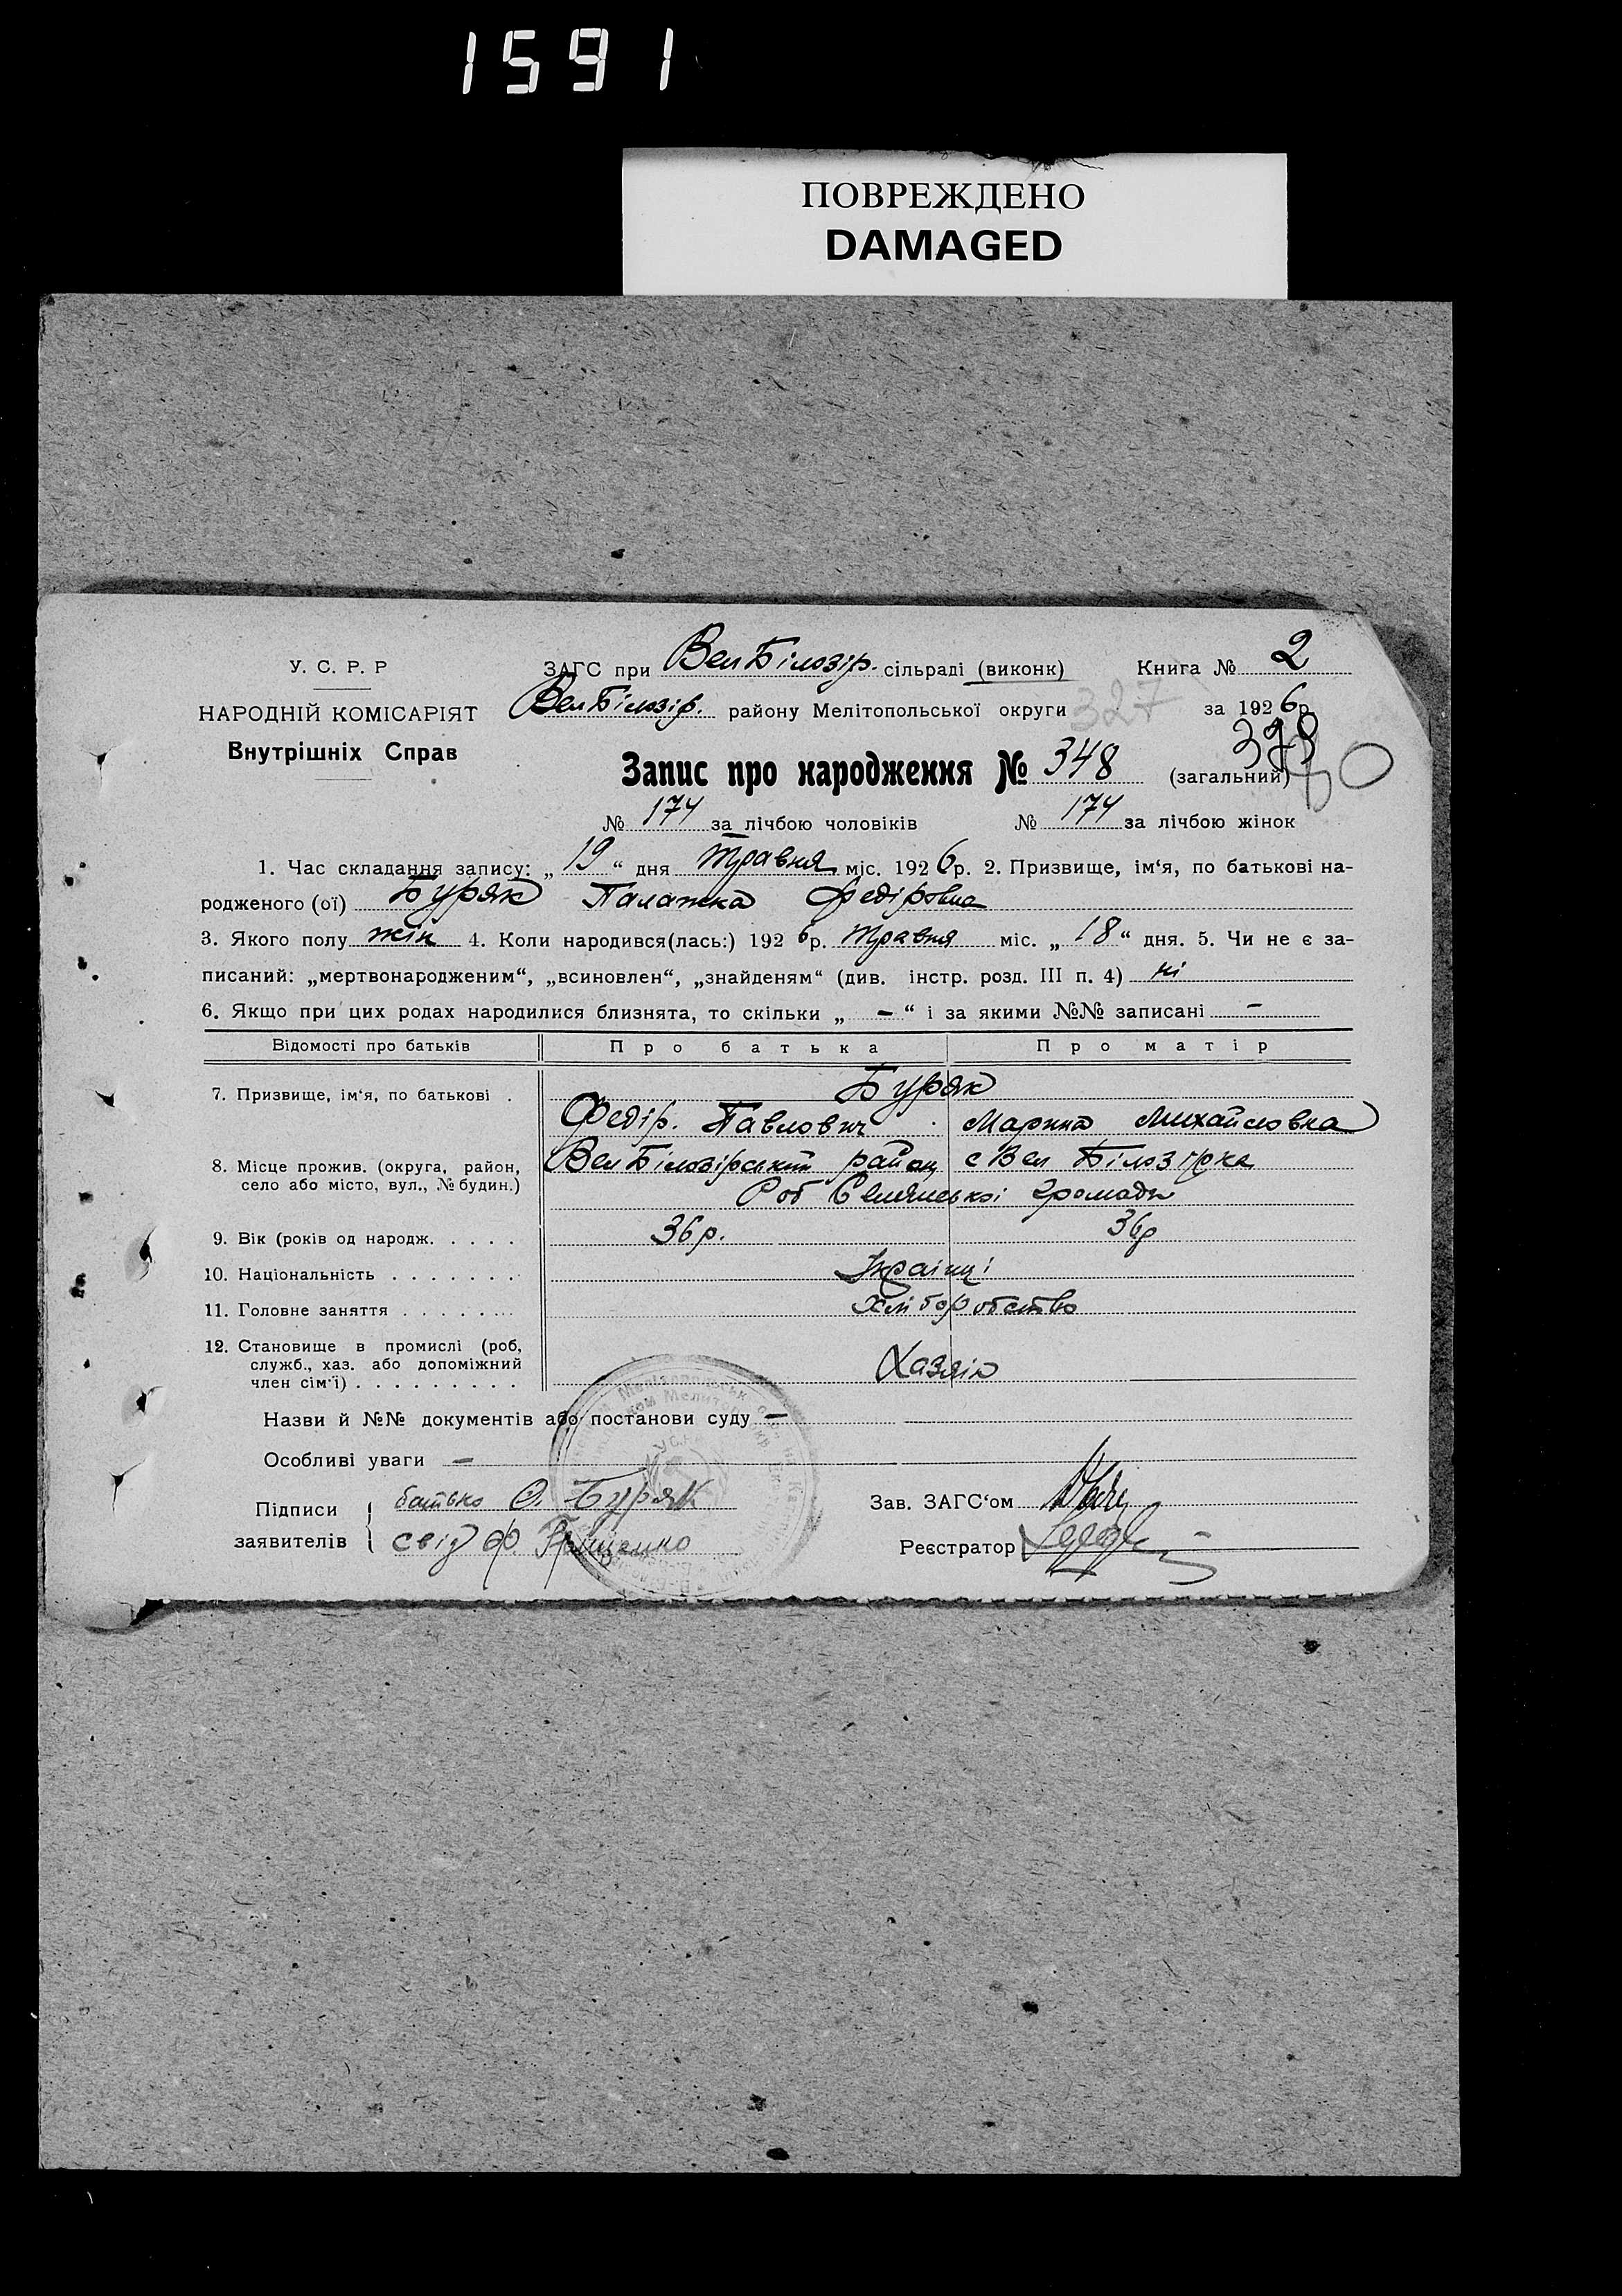 1591
ПОВРЕЖДЕНО
DAMAGED
У. С. Р. Р
НАРОДНІЙ КОМІСАРІЯТ
Внутрішніх Справ
ЗАГС при Вел Білозір. сільраді (виконк)
Книга № 2
Вел Білозір. району Мелітопольської округи
327
за 1926р.
Запис про народження № 348 (загальний)
№ 174 за лічбою чоловіків № 174 за лічбою жінок
1. Час складання запису: „19“ дня травня міс. 1926р. 2. Призвище, ім‘я, по батькові на-
родженого (ої) Буряк Палажка Федіровна
3. Якого полу жін 4. Коли народився(лась:) 1926р. травня міс. „18“ дня. 5. Чи не є за-
писаний: „мертвонародженим“, „всиновлен“, „знайденям“ (див. інстр. розд. III п. 4) ні
6. Якщо при цих родах народилися близнята, то скільки „ – “ і за якими №№ записані –
Відомості про батьків Про батька Про матір
7. Призвище, ім‘я, по батькові . Буряк
Федір. Павлович Марина Михайловна
8. Місце прожив. (округа, район, село або місто, вул., № будин.) Вел Білозірський район с Вел Білозірка
Роб Селянської громади
9. Вік (років од народж. . . . . 36р. 36р
10. Національність . . . . . . . Українці
11. Головне заняття . . . . . . . Хліборобство
12. Становище в промислі (роб, служб., хаз. або допоміжний член сім‘ї) . . . . . . . . . Хазяін
Назви й №№ документів або постанови суду –
Особливі уваги –
Підписи заявителів
батько Ф. Буряк
свід Ф.
Зав. ЗАГС‘ом
Реєстратор